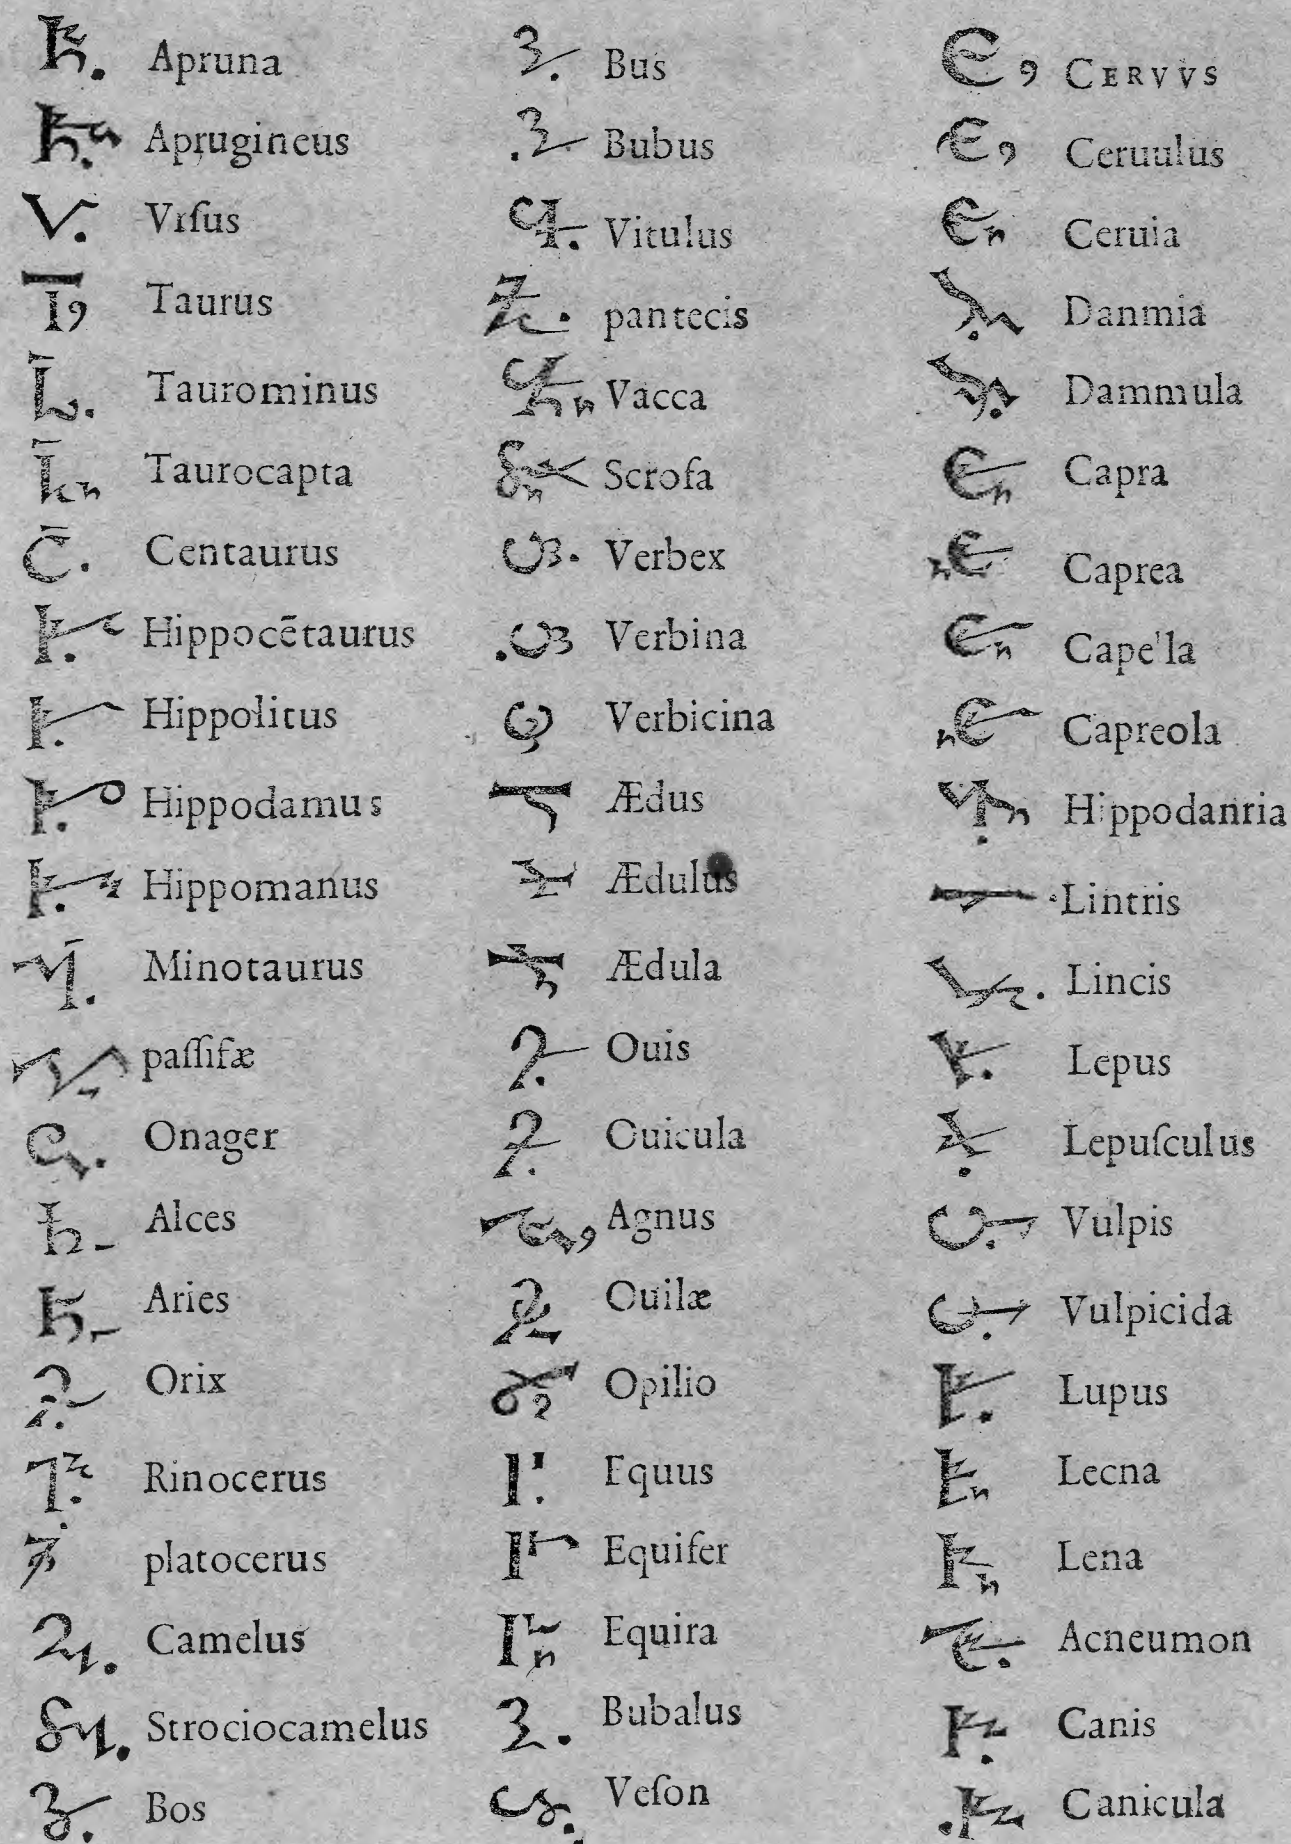 Apruna
Aprugineus
Vrſus
Taurus
Taurominus
Taurocapta
Centaurus
Hippocētaurus
Hippolitus
Hippodamus
Hippomanus
Minotaurus
paſſifæ
Onager
Alces
Aries
Orix
Rinocerus
platocerus
Camelus
Strociocamelus
Bos
Bus
Bubus
Vitulus
pantecis
Vacca
Scrofa
Verbex
Verbina
Verbicina
Ædus
Ædulus
Ædula
Ouis
Ouicula
Agnus
Ouilæ
Opilio
Equus
Equifer
Equira
Bubalus
Veſon
CERVVS
Ceruulus
Ceruia
Danmia
Dammula
Capra
Caprea
Capella
Capreola
Lintris
Lincis
Lepus
Lepuſculus
Vulpis
Vulpicida
Lupus
Lecna
Lena
Acneumon
Canis
Canicula